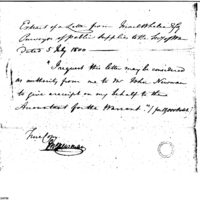 Extract of a Letter from Israel Whelen Esq
Purveyor of Public Supplies to the Secy of War
Dated 5 July 1800
"I request this letter may be considered
as authority from me to Mr John Newman
to give a receipt on my behalf to the
Accountant for the Warrant."
True Copy